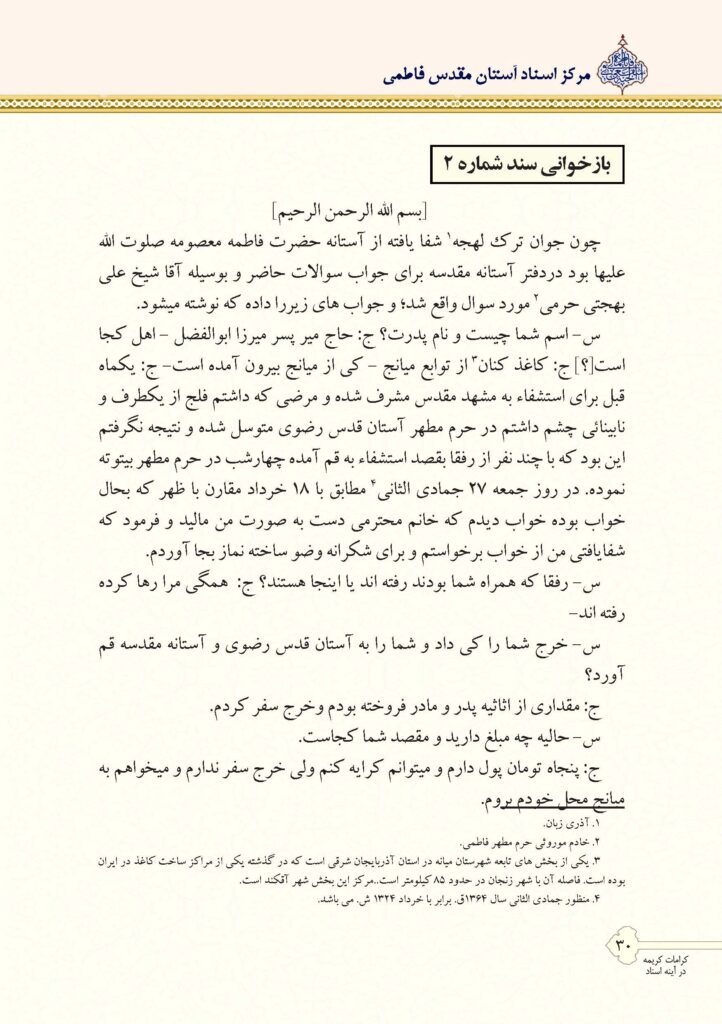 مرکز اسناد آستان مقدس فاطمی
بازخوانی سند شماره ۲
[بسم الله الرحمن الرحیم]
چون جوان ترک لهجه۱ شفا یافته از آستانه حضرت فاطمه معصومه صلوت الله
علیها بود دردفتر آستانه مقدسه برای جواب سوالات حاضر و بوسیله آقا شیخ علی
بهجتی حرمی۲ مورد سوال واقع شد؛ و جواب های زیررا داده که نوشته میشود.
س- اسم شما چیست و نام پدرت؟ ج: حاج میر پسر میرزا ابوالفضل – اهل کجا
است[؟] ج: کاغذ کنان۳ از توابع میانج – کی از میانج بیرون آمده است- ج: یکماه
قبل برای استشفاء به مشهد مقدس مشرف شده و مرضی که داشتم فلج از یکطرف و
نابینائی چشم داشتم در حرم مطهر آستان قدس رضوی متوسل شده و نتیجه نگرفتم
این بود که با چند نفر از رفقا بقصد استشفاء به قم آمده چهارشب در حرم مطهر بیتوته
نموده. در روز جمعه ۲۷ جمادی الثانی۴ مطابق با ۱۸ خرداد مقارن با ظهر که بحال
خواب بوده خواب دیدم که خانم محترمی دست به صورت من مالید و فرمود که
شفایافتی من از خواب برخواستم و برای شکرانه وضو ساخته نماز بجا آوردم.
س- رفقا که همراه شما بودند رفته اند یا اینجا هستند؟ ج: همگی مرا رها کرده
رفته اند-
س- خرج شما را کی داد و شما را به آستان قدس رضوی و آستانه مقدسه قم
آورد؟
ج: مقداری از اثاثیه پدر و مادر فروخته بودم وخرج سفر کردم.
س- حالیه چه مبلغ دارید و مقصد شما کجاست.
ج: پنجاه تومان پول دارم و میتوانم کرایه کنم ولی خرج سفر ندارم و میخواهم به
میانج محل خودم بروم.
۱. آذری زبان.
۲. خادم موروثی حرم مطهر فاطمی.
۳. یکی از بخش های تابعه شهرستان میانه در استان آذربایجان شرقی است که در گذشته یکی از مراکز ساخت کاغذ در ایران
بوده است. فاصله آن با شهر زنجان در حدود ۸۵ کیلومتر است..مرکز این بخش شهر آقکند است.
۴. منظور جمادی الثانی سال ۱۳۶۴ق. برابر با خرداد ۱۳۲۴ ش. می باشد.
۳۰
کرامات کریمه
در آینه اسناد